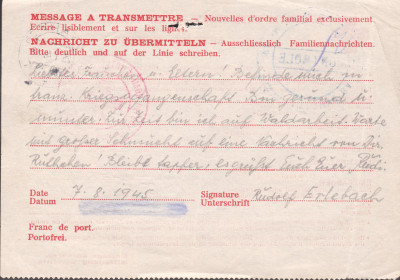 MESSAGE A TRANSMETTRE — Nouvelles d'ordre familial exclusivement.
Ecrire lisiblement et sur les lignes.
NACHRICHT ZU ÜBERMITTELN — Ausschliesslich Familiennachrichten.
Bitte deutlich und auf der Linie schreiben.
Eltern! Befinde mich in
franz. Kriegsgefangenschaft. Bin gesund u.
munter. Zur Zeit bin ich auf Waldarbeit. Warte
mit großer Sehnsucht auf eine Nachricht von Dir,
Bleibt tapfer, es grüßt Euch Euer Rudi.
Date
Datum
7.8.1945
Signature
Unterschrift
Rudolf
Franc de port.
Portofrei.